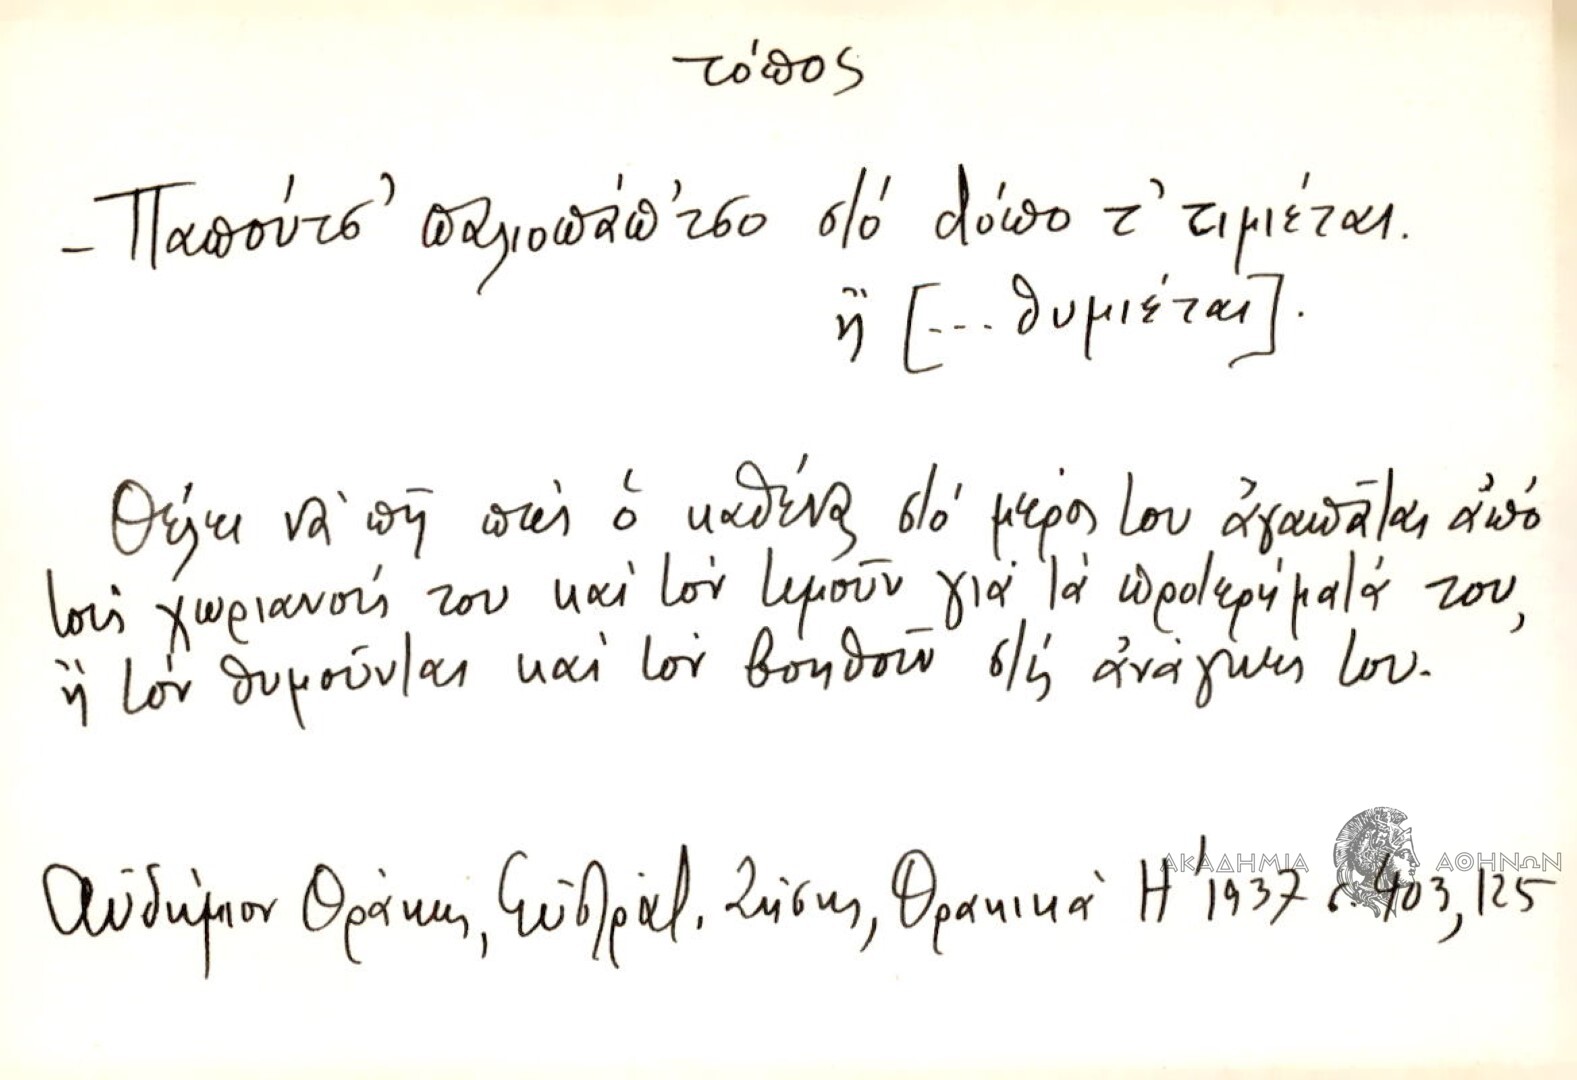 τόπος
- Παπούτσ' παλιοπάπ'τσο στό τόπο τ' τιμιέται.
ἤ [... θυμιέται].
Θέλει νὰ πῆ πὼς ὁ καθένας στό μέρος του ἀγαπᾶται ἀπό
τούς χωριανούς του καί τόν τιμοῦν γιά τά προτερήματά του,
ἤ τόν θυμοῦνται καί τόν βοηθοῦν στίς ἀνάγκες του.
Αὐδήμιον Θράκης, Εὐστράτ. Ζήσης, Θρακικά Η' 1937 σ. 403, 125
ΑΚΑΔΗΜΙΑ ΑΘΗΝΩΝ